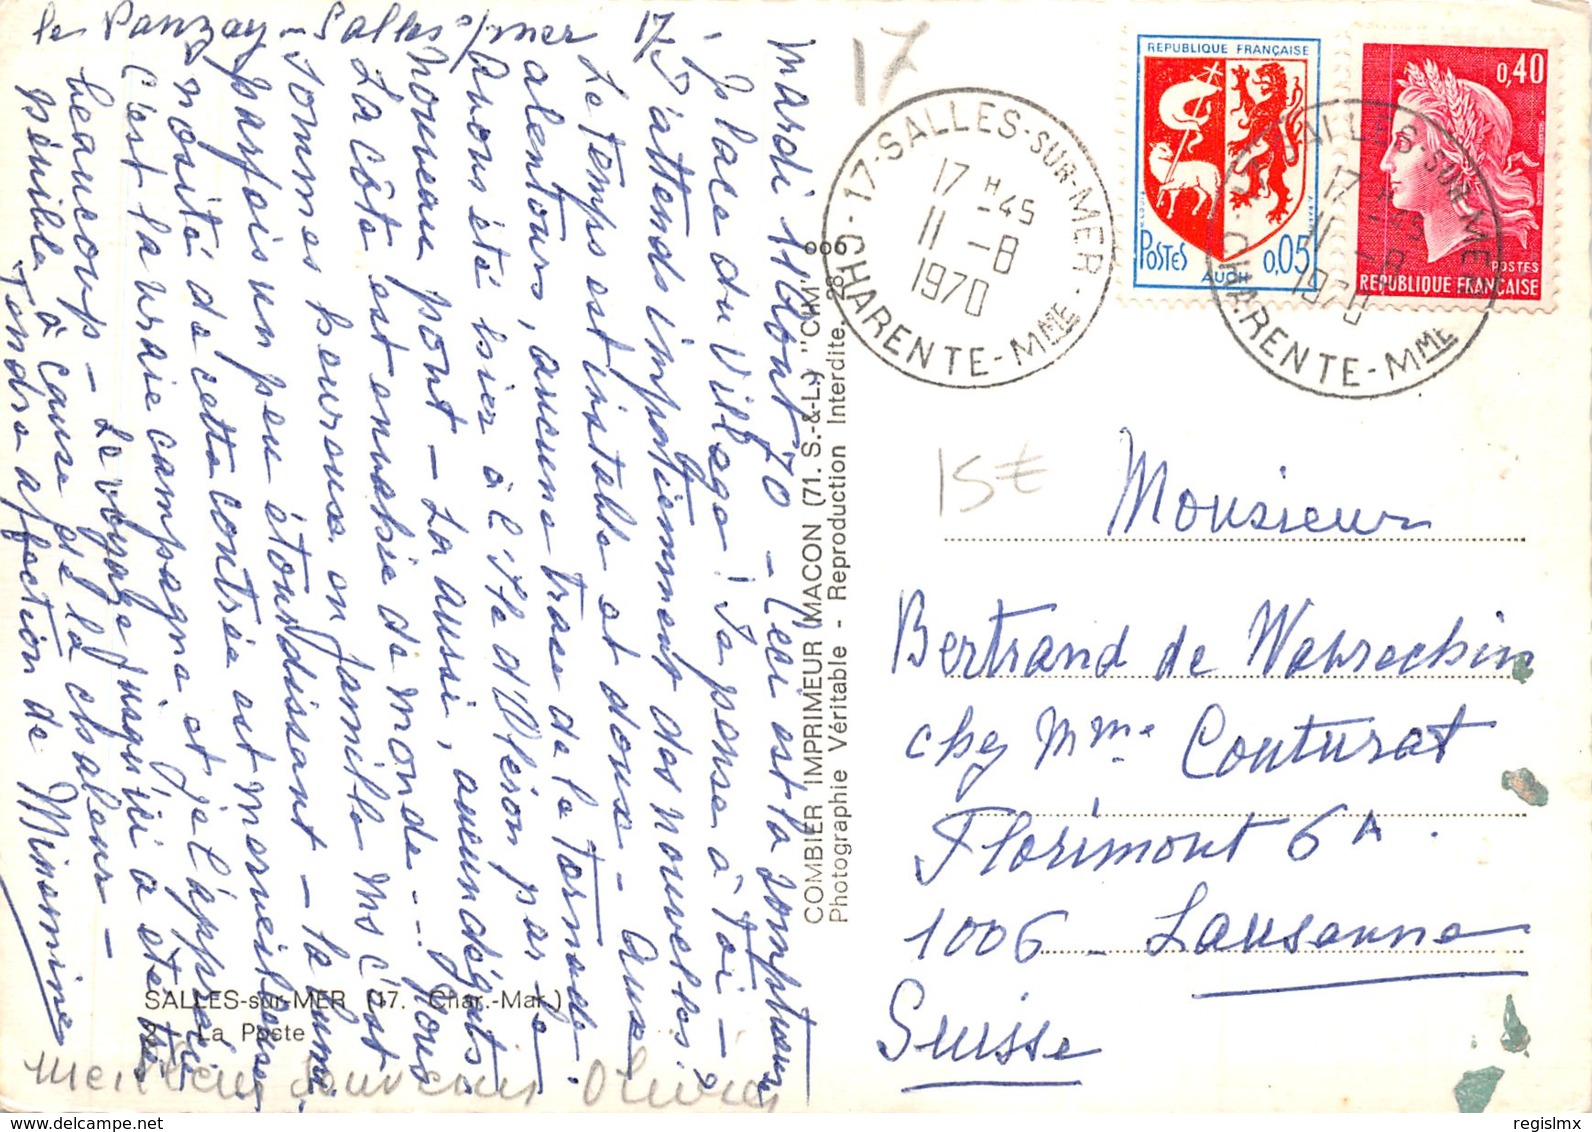 le Panzay - Salles s/mer 17.
Mardi 11 Août 70 - Ceci est la somptueuse
place du village! Je pense à Toi -
J'attends impatiemment des nouvelles?
Le temps est instable et doux - Aux
alentours, aucune trace de la Tornade.
Avons été hier à l'Ile d'Oléron par le
nouveau pont - Là aussi, aucun dégats.
La côte est envahie de monde... Nous
sommes heureuse en famille ms c'est
parfois un peu étourdissant - la lumi-
nosité de cette contrée est merveilleuse
C'est la vraie campagne et je l'apprécie
beaucoup - Le voyage jusqu'ici a été très
pénible à cause de la chaleur -
Tendre affection de Minomine
Meilleurs souvenirs Olivier
SALLES-sur-MER (17. Char.-Mar.)
La Poste
COMBIER IMPRIMEUR MACON (71. S.-&-L.) "CIM"
Photographie Véritable - Reproduction Interdite
17
17-SALLES-SUR-MER
17 H 45
11 - 8
1970
CHARENTE-MME
REPUBLIQUE FRANÇAISE
POSTES
AUCH
0,05
0,40
POSTES
REPUBLIQUE FRANÇAISE
SALLES-SUR-MER
17 H 45
11 - 8
1970
CHARENTE-MME
15€
Monsieur
Bertrand de Watsechin
chez Mme Couturat
Florimont 6A.
1006 - Lausanne
Suisse
delcampe.net
regislmx